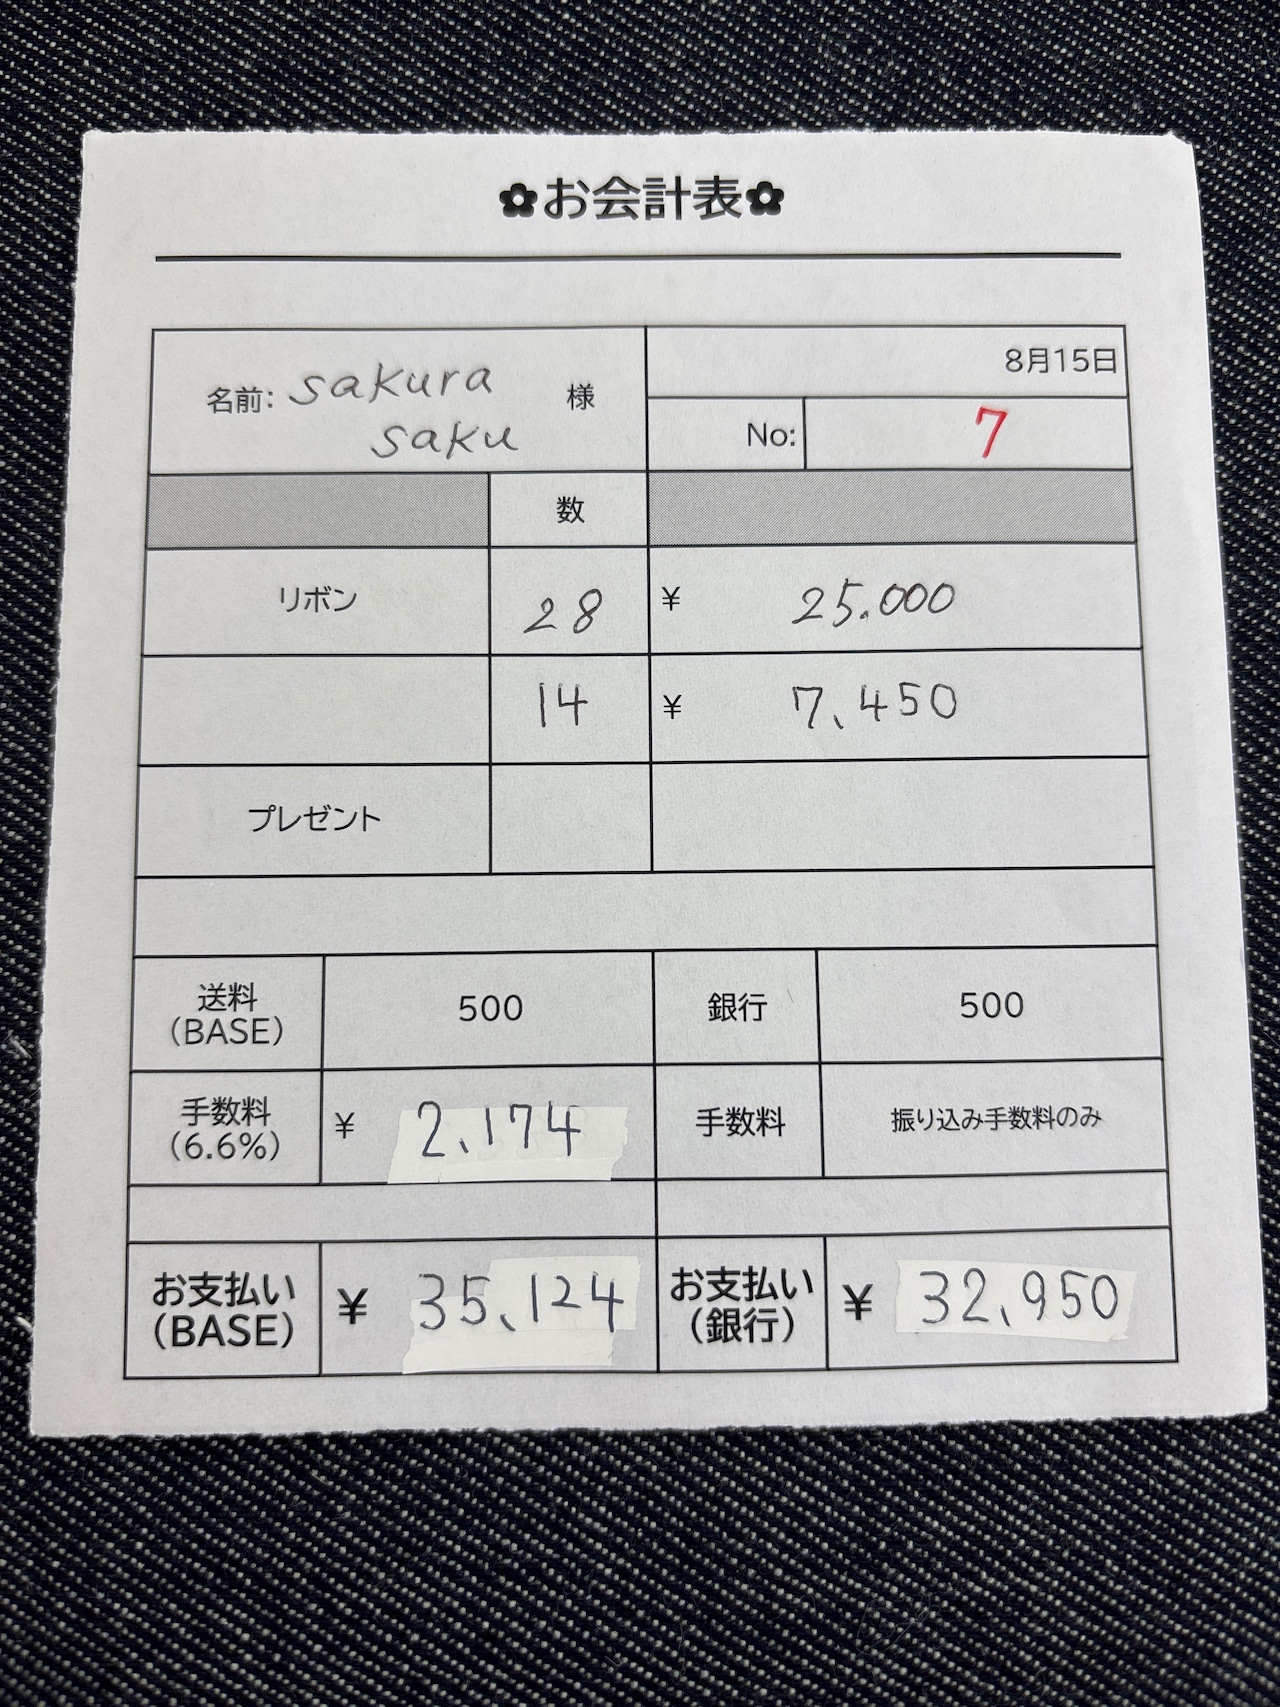 ✿お会計表✿
名前: sakura saku 様
8月15日
No: 7
数
リボン 28 ¥ 25.000
14 ¥ 7,450
プレゼント
送料(BASE) 500 銀行 500
手数料(6.6%) ¥ 2,174 手数料 振り込み手数料のみ
お支払い(BASE) ¥ 35,124 お支払い(銀行) ¥ 32,950